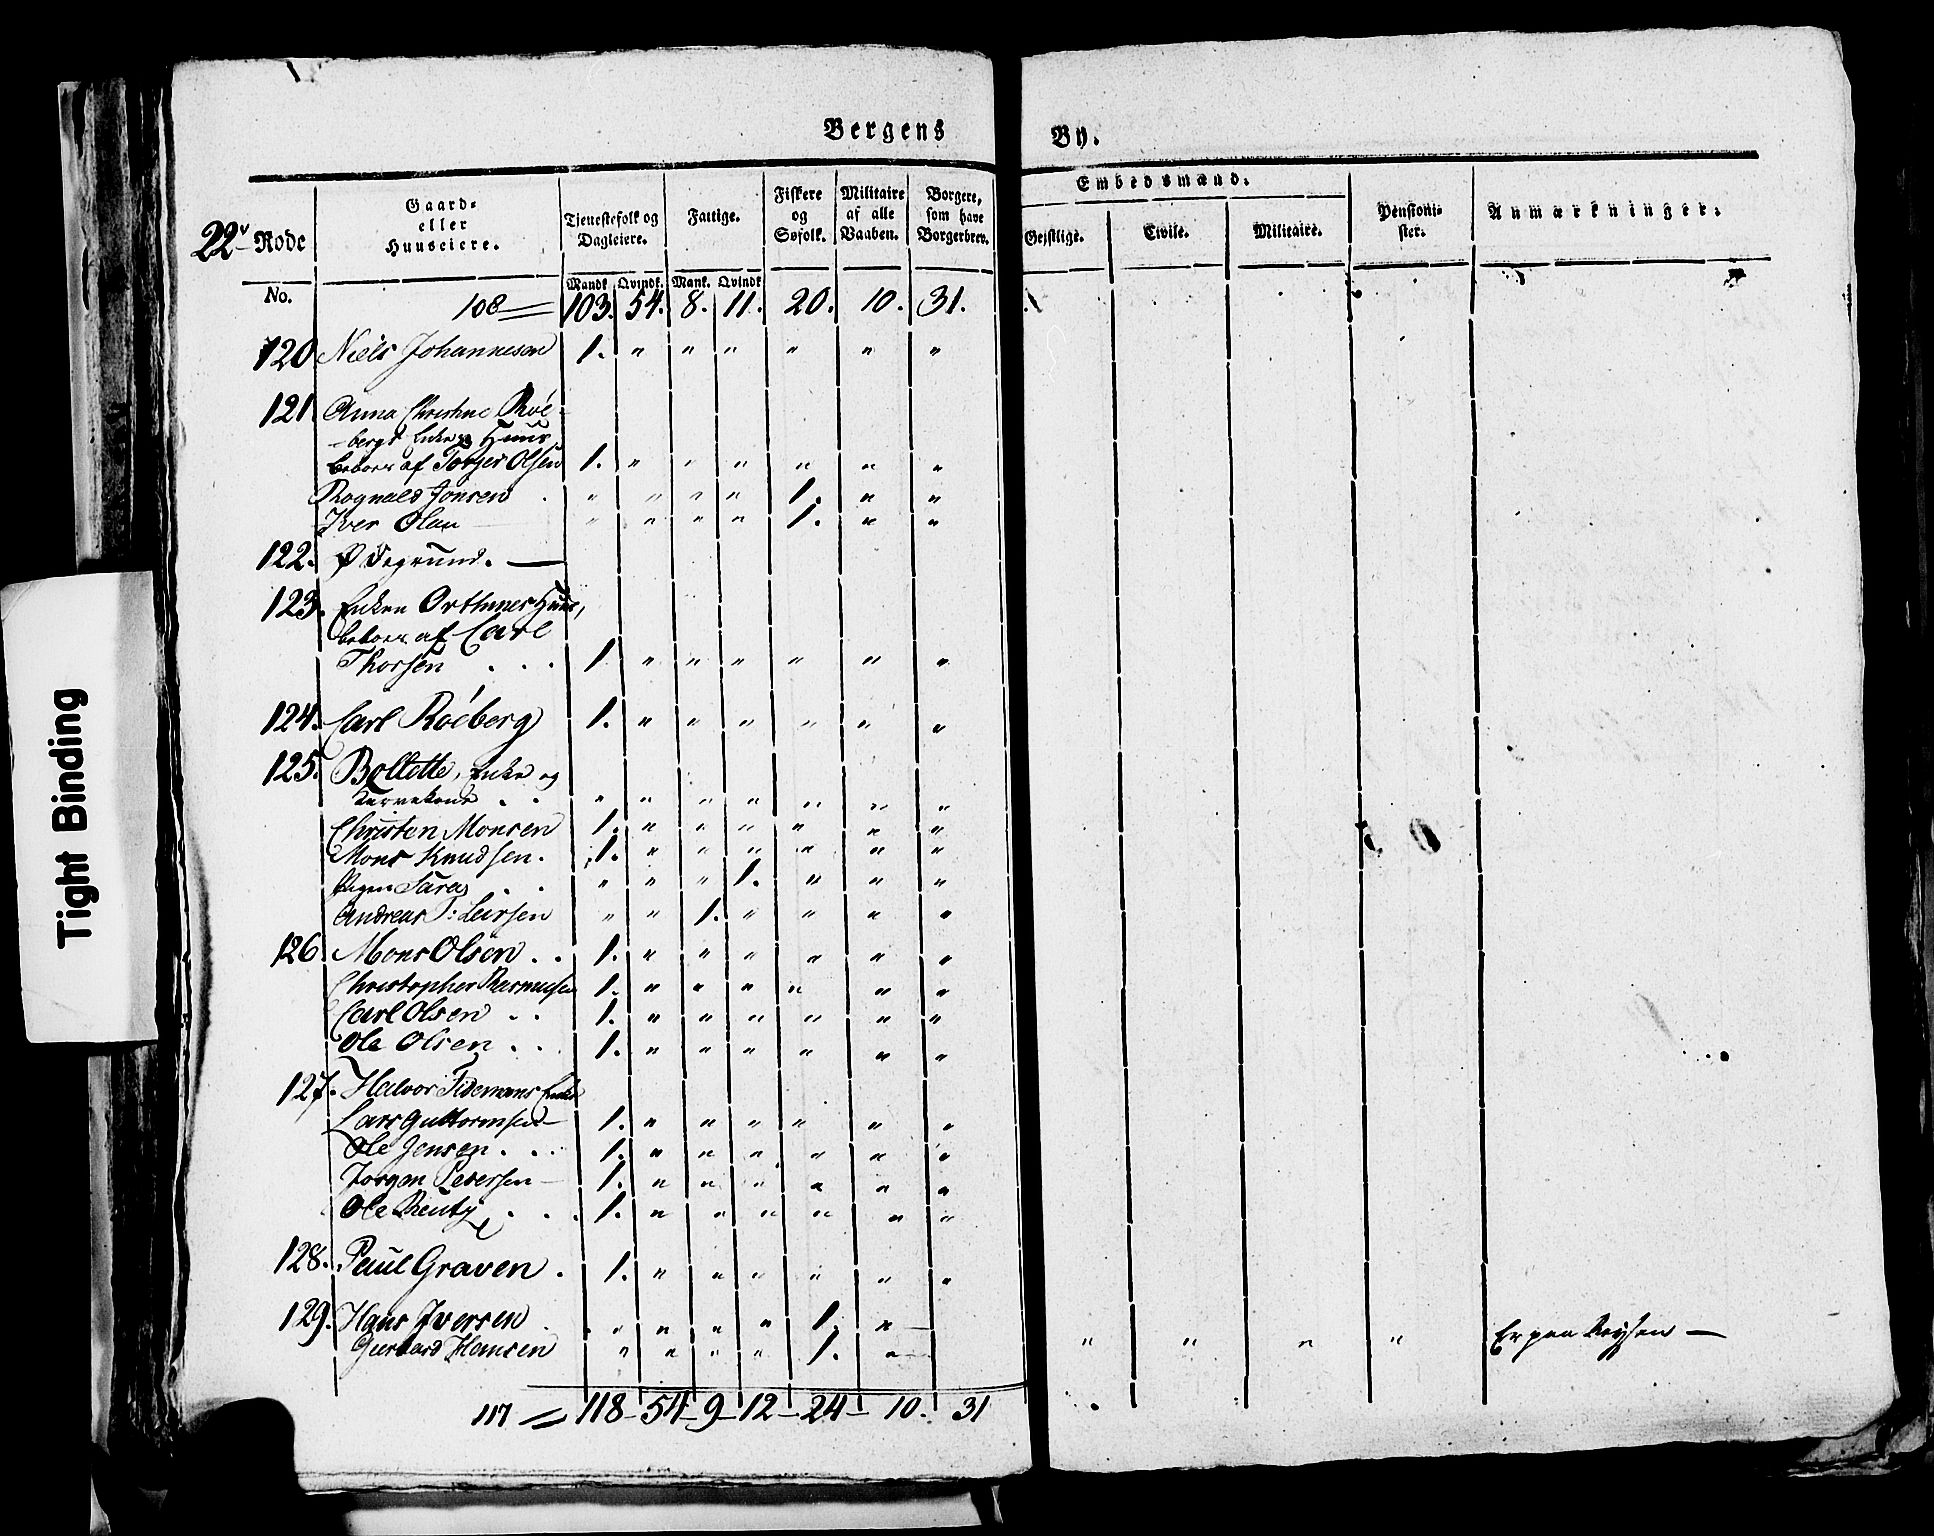 Tight Binding
Bergens By.
22de Rode
Gaard-
eller
Huuseiere.
Tjenestefolk og
Dagleiere.
Fattige.
Fiskere
og
Søfolk.
Militaire
af alle
Vaaben.
Borgere,
som have
Borgerbrev.
Embedsmænd.
Geistlige. Civile. Militaire.
Pensioni-
ster.
Anmærkninger.
No. Mandk. Qvindk. Mank. Qvindk.
108 103. 54. 8. 11. 20. 10. 31.
120 Niels Johannesen 1. " " " " " "
121 Anna Christine Roé-
-bergs Enkes Huus
beboes af Torger Olsen 1. " " " " " "
Rognald Jonsen . " " " " 1. " "
Iver Olau " " " " 1. " "
122. Ø degrund. —
123. Enken Orthines Huus,
beboes af Carl
Thorsen . . . 1 " " " " " "
124. Carl Roéberg 1. " " " " " "
125. Boltette, Enke og
. . " " " " " " "
Christen Monsen 1. " " " " " "
Mons Knudsen. 1. " " " " " "
Pigen Sara . . " " " 1. " " "
Andreas P: Leirsen " " 1. " " " "
126 Mons Olsen . . 1. " " " " " "
Christopher Rasmussen 1. " " " " " "
Carl Olsen . . 1. " " " " " "
Ole Olsen . . 1. " " " " " "
127. Halvor Tidemans Enke
Lars Guttormsen — 1. " " " " " "
Ole Jensen . . . 1. " " " " " "
Jørgen Petersen — 1. " " " " " "
Ole Reuty . . . 1. " " " " " "
128. Paul Graven . 1. " " " " " "
129. Hans Iversen . " " " " 1. " —
Gerhard Hansen " " " " 1. " — " " " " Er paa Reysen —
117 = 118 - 54 - 9 - 12 - 24 - 10. 31